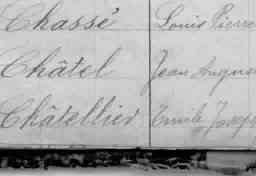 Chassé Louis Pierre
Châtel Jean Augus
Châtellier Emile Josep